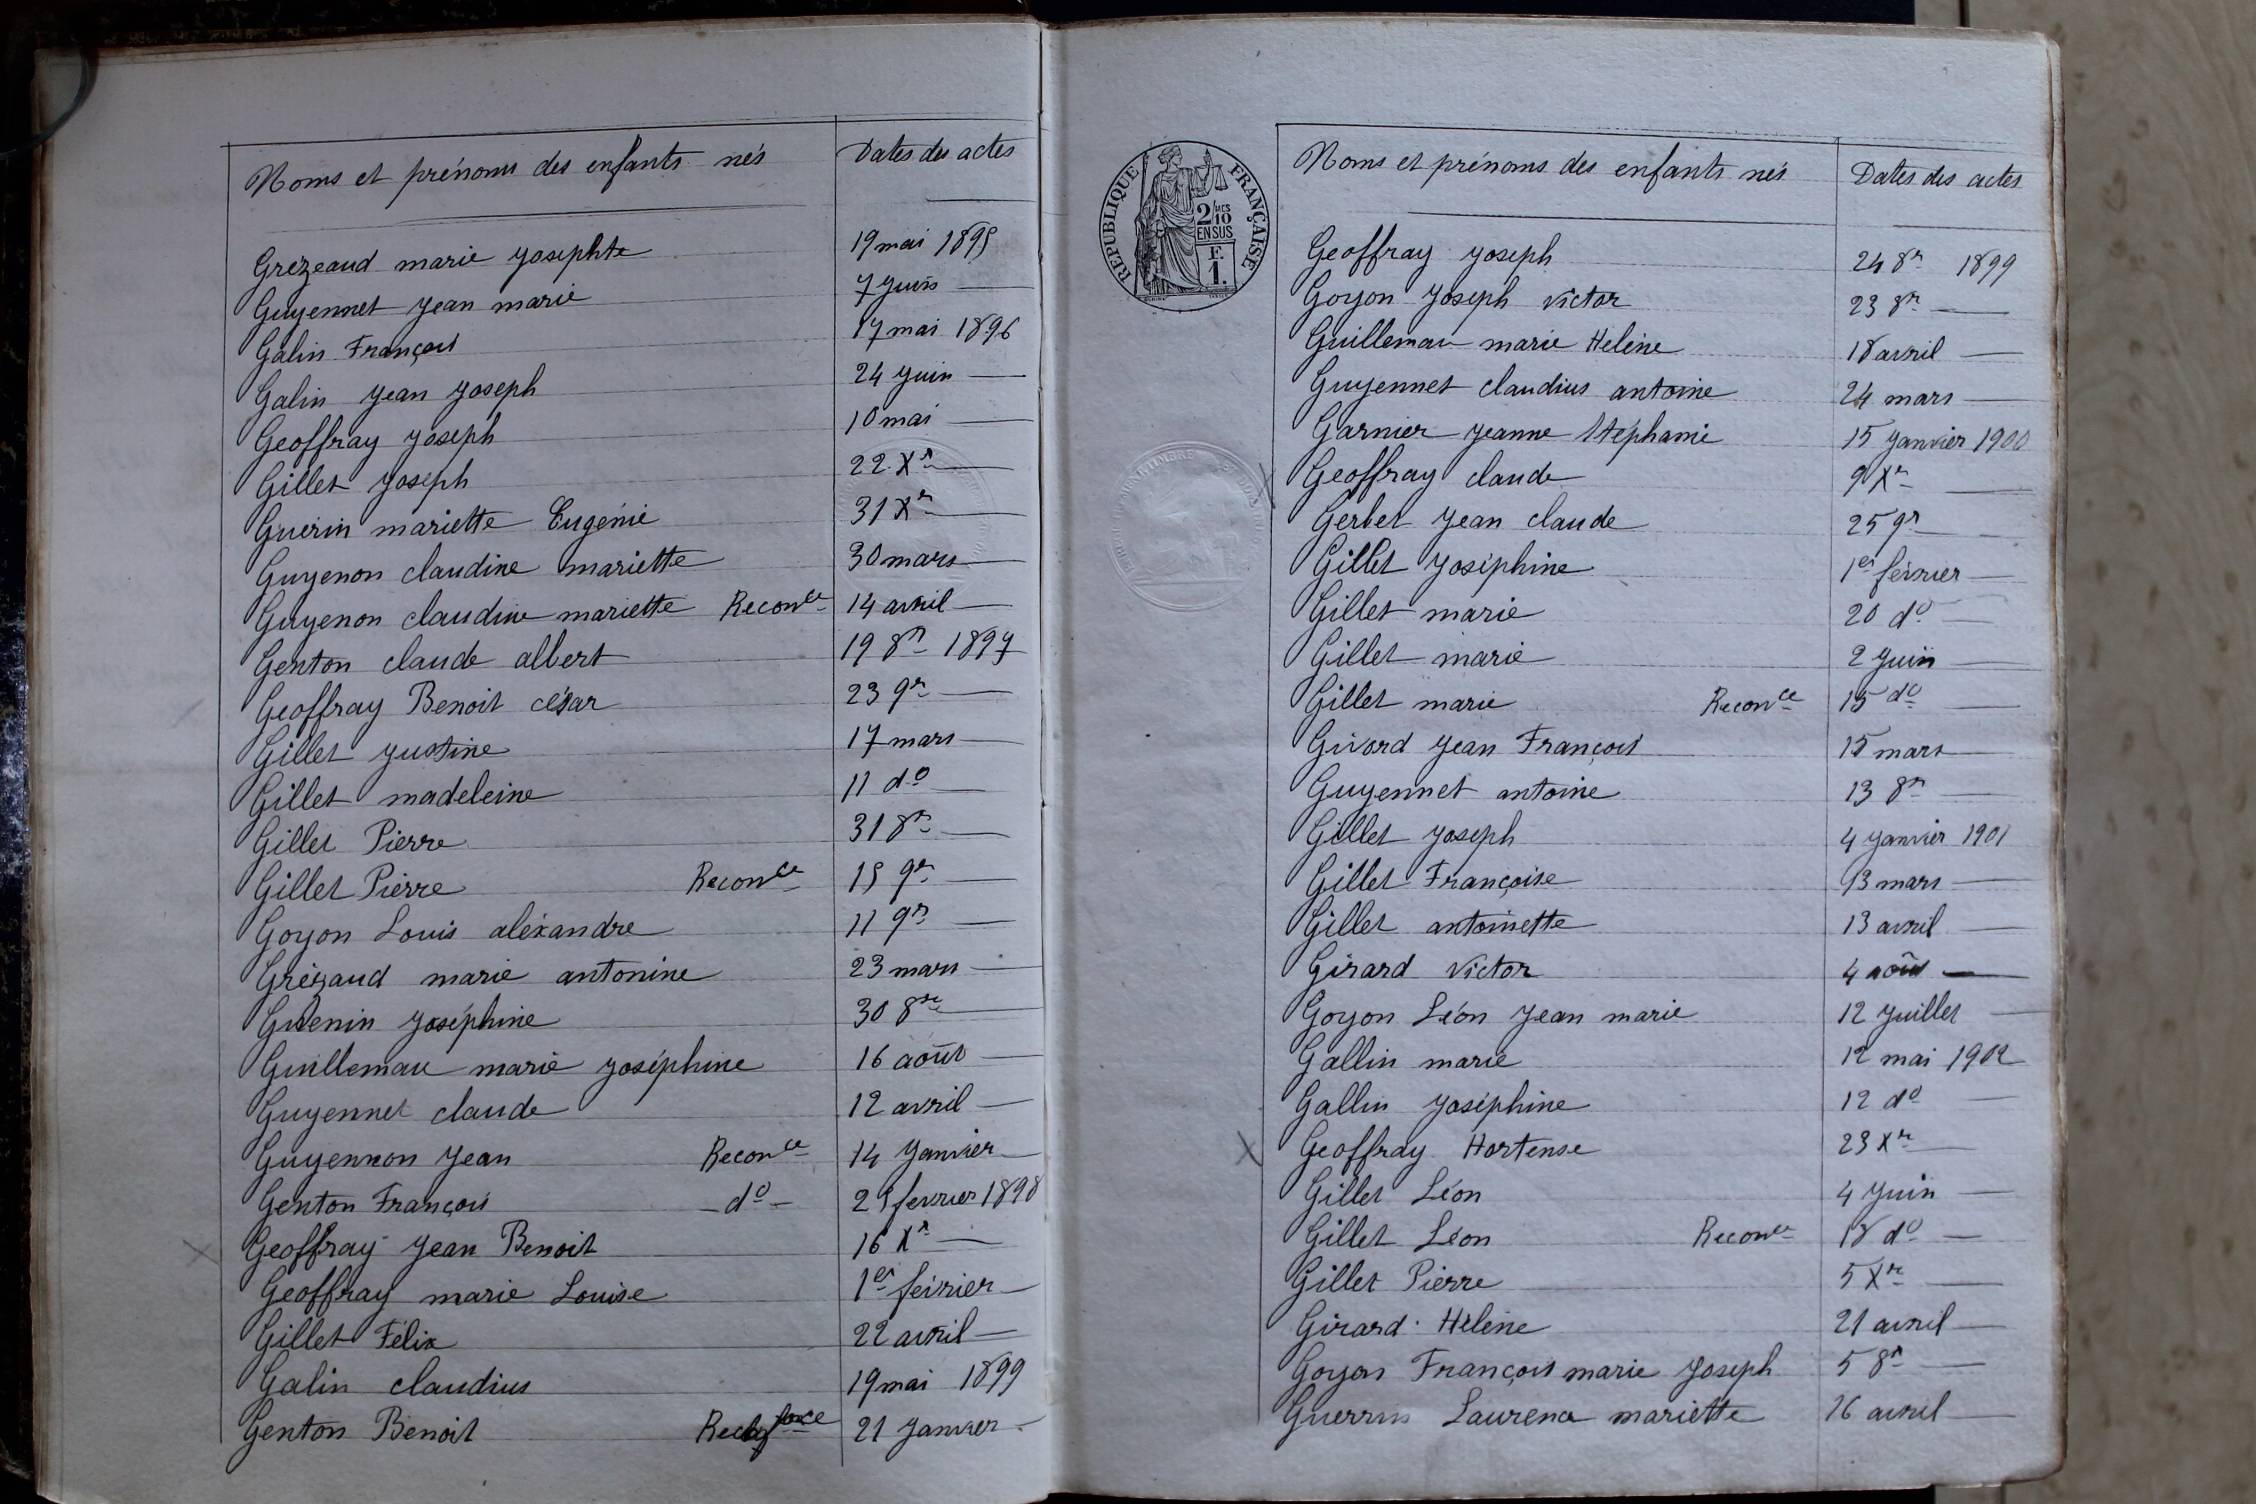 Noms et prénoms des enfants nés Dates des actes
Grézeaud marie josephte 19 mai 1895
Guyennet jean marie 7 juin —
Galin François 17 mai 1896
Galin jean joseph 24 juin —
Geoffray joseph 10 mai —
Gillet joseph 22 Xr —
Guerin mariette Eugénie 31 Xr —
Guyenon claudine mariette 30 mars —
Guyenon claudine mariette Reconce 14 avril —
Genton claude albert 19 8r 1897
Geoffray Benoit césar 23 9r —
Gillet justine 17 mars —
Gillet madeleine 11 do —
Gillet Pierre 31 8r —
Gillet Pierre Reconce 15 9r —
Goyon Louis aléxandre 11 9r —
Grézaud marie antonine 23 mars —
Guenin joséphine 30 8re —
Guillemau marie joséphine 16 août —
Guyennet claude 12 avril —
Guyennon jean Reconce 14 janvier —
Genton François — do — 25 fevrier 1898
Geoffray jean Benoit 16 Xr —
Geoffray marie Louise 1er février —
Gillet Félix 22 avril —
Galin claudius 19 mai 1899
Genton Benoit 21 janvier —
RÉPUBLIQUE FRANÇAISE
2/10 MES
EN SUS
F.
1.
Noms et prénoms des enfants nés Dates des actes
Geoffray joseph 24 8r 1899
Goyon joseph victor 23 8r —
Guillemau marie Helène 18 avril —
Guyennet claudius antoine 24 mars —
Garnier jeanne Stéphanie 15 janvier 1900
Geoffray claude 9 Xr —
Gerbet jean claude 25 9r —
Gillet joséphine 1er février —
Gillet marie 20 do —
Gillet marie 2 juin —
Gillet marie Reconce 15 do —
Givord jean François 15 mars —
Guyennet antoine 13 8r —
Gillet joseph 4 janvier 1901
Gillet Françoise 13 mars —
Gillet antoinette 13 avril —
Girard victor 4 août —
Goyon Léon jean marie 12 juillet —
Gallin marie 12 mai 1902
Gallin joséphine 12 do —
X Geoffray Hortense 23 Xr —
Gillet Léon 4 juin —
Gillet Léon Reconce 18 do —
Gillet Pierre 5 Xr —
Girard Hélène 21 avril —
Goyon François marie joseph 5 8r —
Laurence mariette avril —